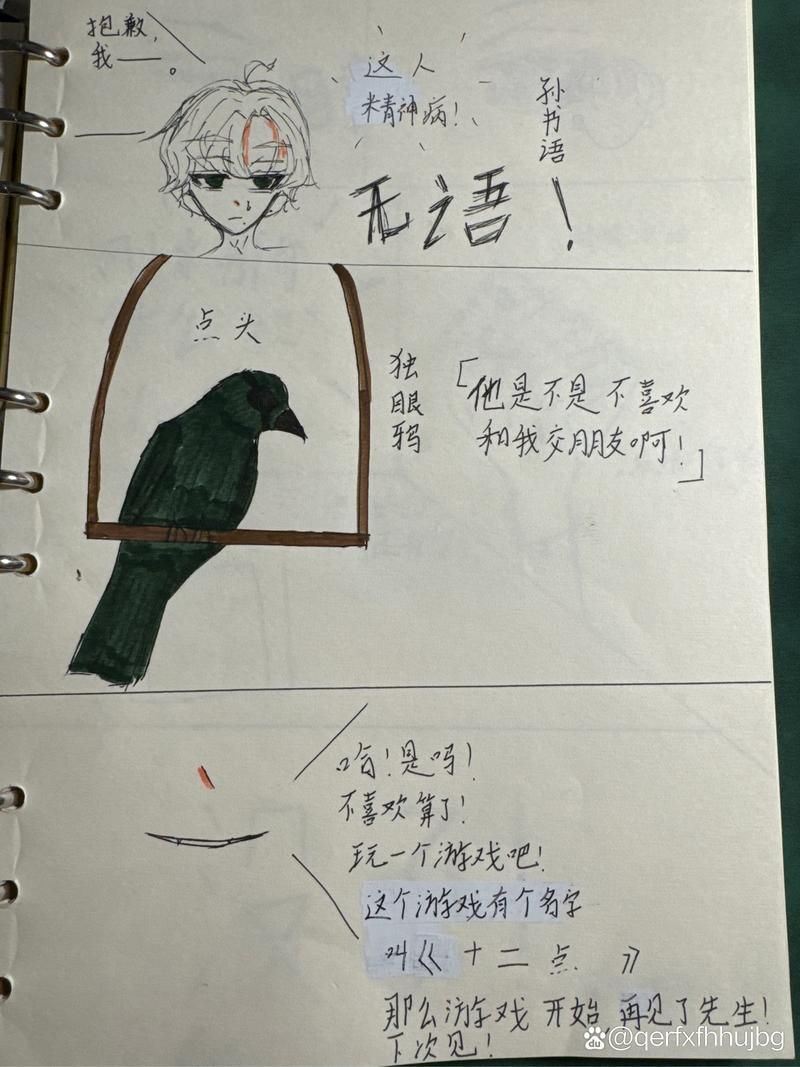 抱歉，
我——。
这人
精神病！
孙书语
无语！
点头
独眼鸦
「他是不是不喜欢
和我交朋友啊！」
哈！是吗！
不喜欢算了！
玩一个游戏吧！
这个游戏有个名字
叫《十二点》
那么游戏开始，再见了先生！
下次见！
Baidu @qerfxfhhujbg